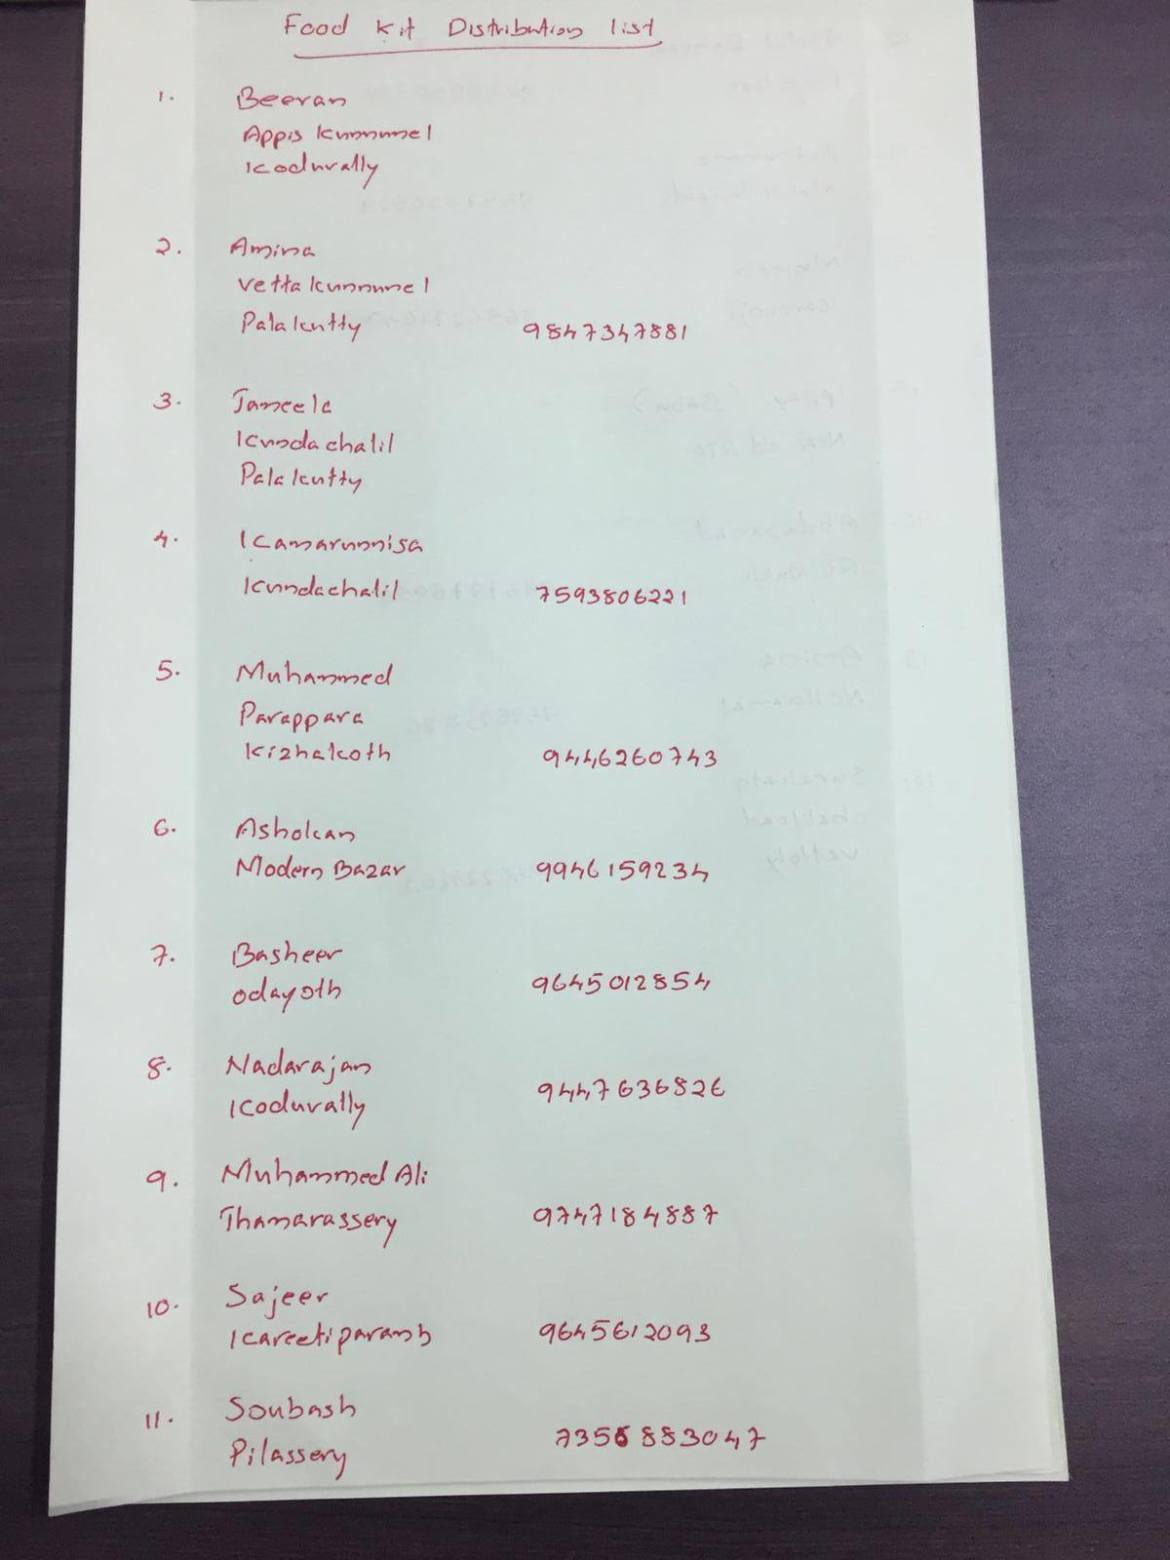 Food Kit Distribution list
1. Beeran
Appis kunnumel
Koduvally
2. Amina
Vettakunnumel
Palakutty 9847347881
3. Jameela
Kundachalil
Palakutty
4. Kamarunnisa
Kundachalil 7593806221
5. Muhammed
Parappara
Kizhakoth 9446260743
6. Asholcan
Modern Bazar 9946159234
7. Basheer
odayoth 9645012854
8. Nadarajan
Koduvally 9447636826
9. Muhammed Ali
Thamarassery 9747184887
10. Sajeer
Kareetiparamb 9645612093
11. Soubash
Pilassery 7356883047